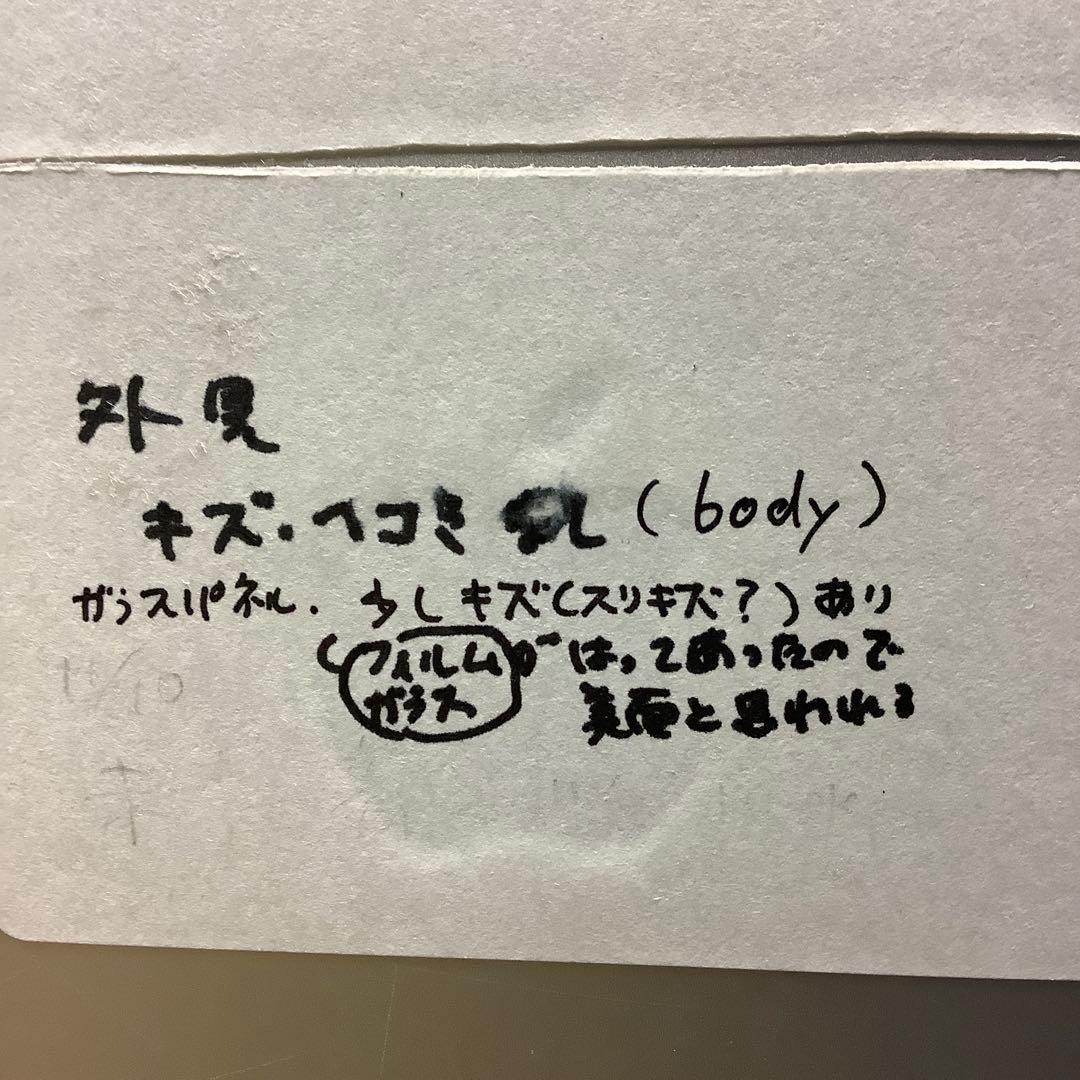 外見
キズ・ヘコミ (body)
ガラスパネル. 少しキズ(スリキズ?)あり
(フィルム が はってあったので
ガラス 美面と思われる
1/10